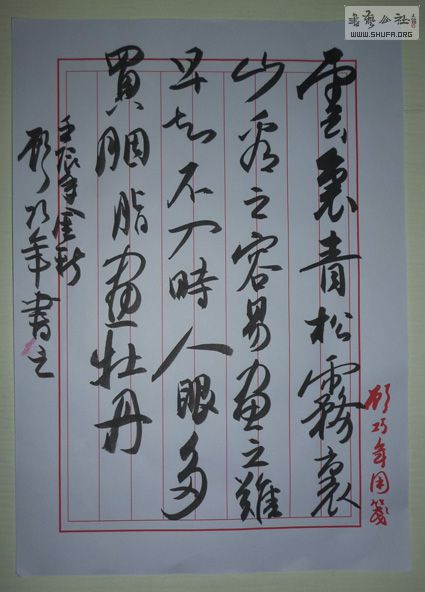 雲裏青松霧裏
山看之容易畫之難
早知不入時人眼多
買胭脂畫牡丹
壬辰年金秋
顧巧年書之
顧巧年用箋
書藝公社
WWW.SHUFA.ORG